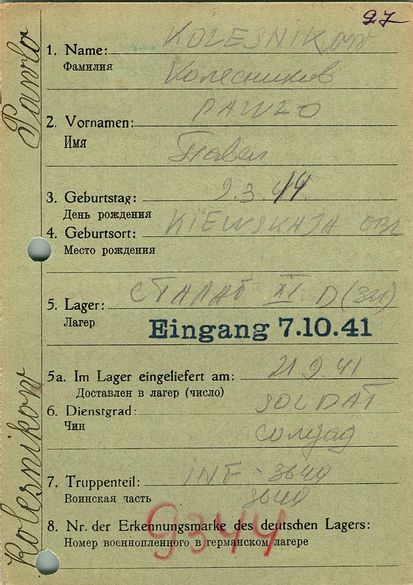 97
Pawlo
Kolesnikow
1. Name: KOLESNIKOW
Фамилия Колесников
PAWLO
2. Vornamen:
Имя Павел
3. Geburtstag: 9.3.
День рождения
4. Geburtsort: KIEWSKAJA OBL
Место рождения
5. Lager: СТАЛАГ XI D (321)
Лагер
Eingang 7.10.41
5a. Im Lager eingeliefert am: 21.9.41
Доставлен в лагер (число)
6. Dienstgrad: SOLDAT
Чин солдат
7. Truppenteil: INF-3640
Воинская часть 3640
8. Nr. der Erkennungsmarke des deutschen Lagers:
Номер военнопленного в германском лагере
9344